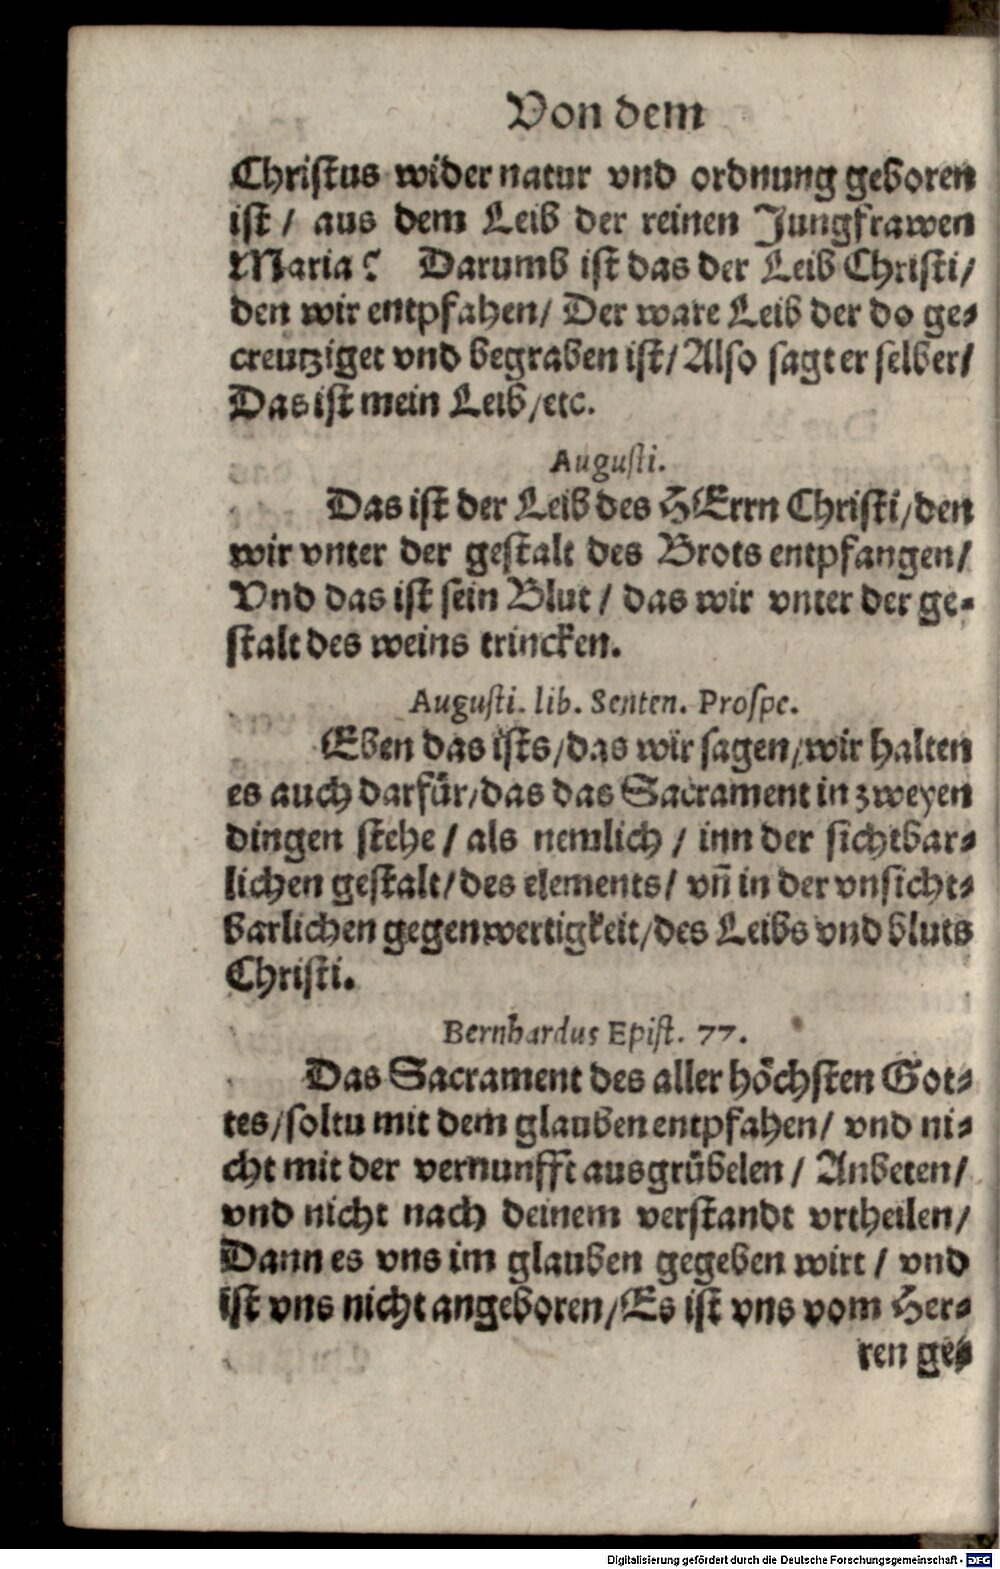 Von dem
Christus wider natur vnd ordnung geboren
ist / aus dem Leib der reinen Jungfrawen
Maria? Darumb ist das der Leib Christi/
den wir entpfahen/ Der ware Leib der do ge⸗
creutziget vnd begraben ist/ Also sagt er selber/
Das ist mein Leib/etc.
Augusti.
Das ist der Leib des HErrn Christi/den
wir vnter der gestalt des Brots entpfangen/
Vnd das ist sein Blut / das wir vnter der ge⸗
stalt des weins trincken.
Augusti. lib. Senten. Prospe.
Eben das ists/das wir sagen/wir halten
es auch darfür/das das Sacrament in zweyen
dingen stehe / als nemlich / inn der sichtbar⸗
lichen gestalt/des elements/ vñ in der vnsicht⸗
barlichen gegenwertigkeit/des Leibs vnd bluts
Christi.
Bernhardus Epist. 77.
Das Sacrament des aller höchsten Got⸗
tes/soltu mit dem glauben entpfahen/ vnd ni⸗
cht mit der vernunfft ausgrübelen / Anbeten/
vnd nicht nach deinem verstandt vrtheilen/
Dann es vns im glauben gegeben wirt / vnd
ist vns nicht angeboren/Es ist vns vom Her⸗
ren ge⸗
Digitalisierung gefördert durch die Deutsche Forschungsgemeinschaft - DFG